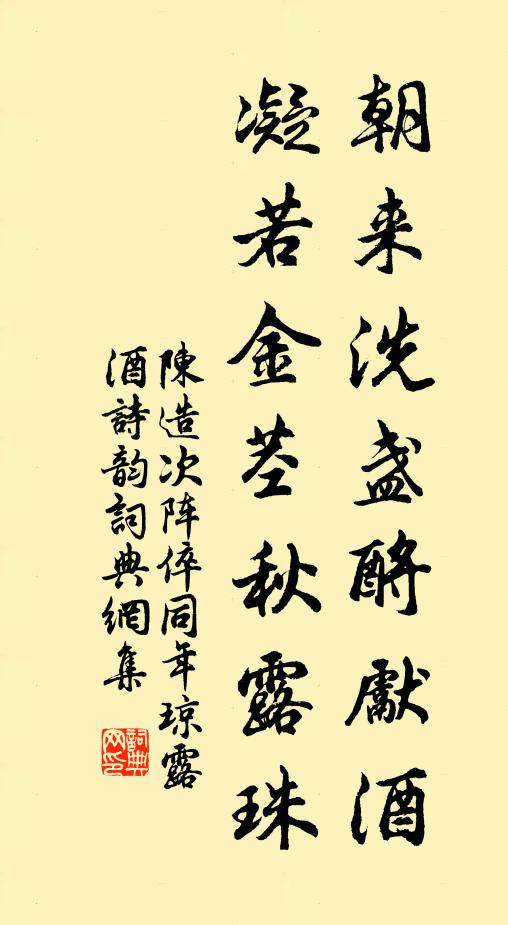 朝来洗盏酧獻酒
凝若金茎秋露珠
陳造次阵倅同年琼露
酒詩韵詞典網集
詞典
网印